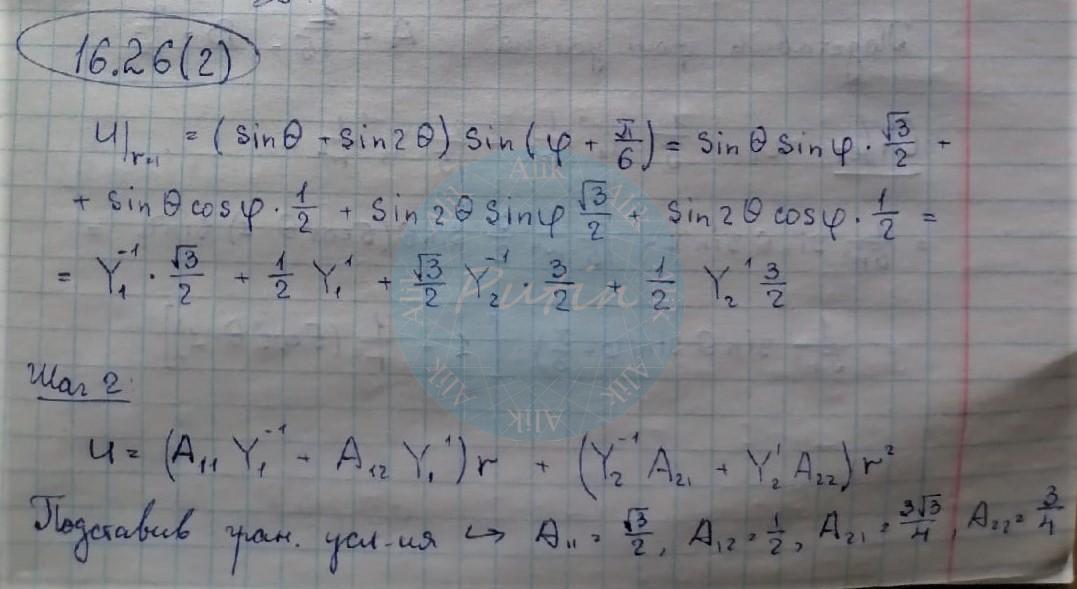 16.26(2)
U|_{r=1} = (sinθ + sin2θ) sin(φ + π/6) = sinθ sinφ · √3/2 +
+ sinθ cosφ · 1/2 + sin2θ sinφ √3/2 + sin2θ cosφ · 1/2 =
= Y₁⁻¹ · √3/2 + 1/2 Y₁¹ + √3/2 Y₂⁻¹ · 3/2 + 1/2 Y₂¹ 3/2
Шаг 2:
U = (A₁₁ Y₁⁻¹ + A₁₂ Y₁¹) r + (Y₂⁻¹ A₂₁ + Y₂¹ A₂₂) r²
Подставив гран. усл-ия ↪ A₁₁ = √3/2, A₁₂ = 1/2, A₂₁ = 3√3/4, A₂₂ = 3/4
Alik Pusin